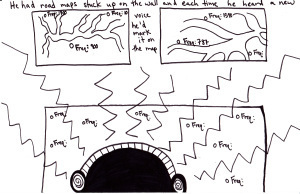 He had road maps stuck up on the wall and each time he heard a new
voice
he'd
mark
it on
the map
o Freq: 900
o Freq: 787
o Freq:
o Freq:
o Freq:
o Freq:
o Freq:
o Freq:
o Freq:
o Freq: